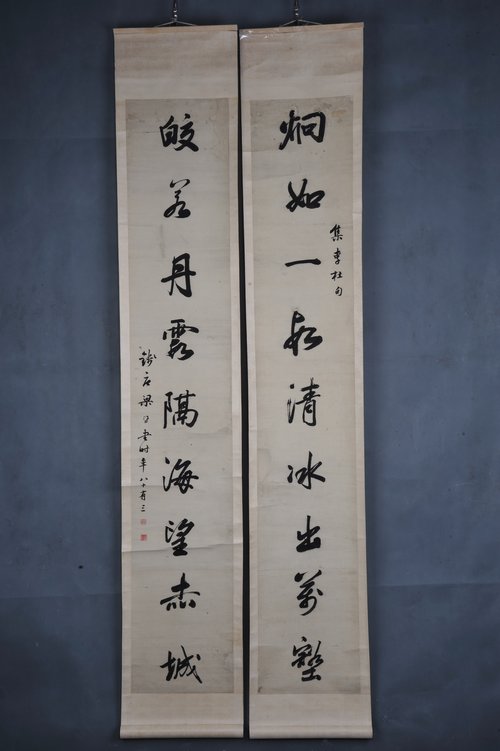 炯如一段清冰出萬壑
集李杜句
皎若丹霞隔海望赤城
梁同書時年八十有三